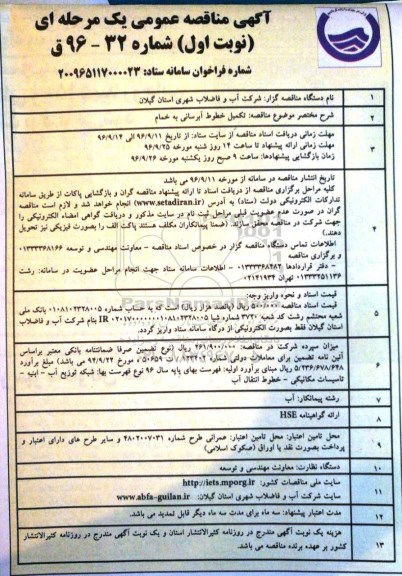 آگهی مناقصه عمومی یک مرحله ای
(نوبت اول) شماره ۳۲ - ۹۶ ق
شماره فراخوان سامانه ستاد: ۲۰۰۹۶۵۱۱۷۰۰۰۰۲۳
۱ نام دستگاه مناقصه گزار: شرکت آب و فاضلاب شهری استان گیلان
۲ شرح مختصر موضوع مناقصه: تکمیل خطوط آبرسانی به خمام
۳ مهلت زمانی دریافت اسناد مناقصه از سایت ستاد: از تاریخ ۹۶/۹/۱۱ الی ۹۶/۹/۱۴
مهلت زمانی ارائه پیشنهاد تا ساعت ۱۴ روز شنبه مورخه ۹۶/۹/۲۵
زمان بازگشایی پیشنهادها: ساعت ۹ صبح روز یکشنبه مورخه ۹۶/۹/۲۶
۴ تاریخ انتشار مناقصه در سامانه از مورخه ۹۶/۹/۱۱ می باشد
کلیه مراحل برگزاری مناقصه از دریافت اسناد تا ارائه پیشنهاد مناقصه گران و بازگشایی پاکات از طریق سامانه
تدارکات الکترونیکی دولت (ستاد) به آدرس (www.setadiran.ir) انجام خواهد شد و لازم است مناقصه
گران در صورت عدم عضویت قبلی مراحل ثبت نام در سایت مذکور و دریافت گواهی امضاء الکترونیکی را
جهت شرکت در مناقصه محقق سازند. (ضمنا پیمانکاران مکلف هستند پاکت الف را بصورت فیزیکی نیز تحویل
دهند.)
اطلاعات تماس دستگاه مناقصه گزار در خصوص اسناد مناقصه - معاونت مهندسی و توسعه ۰۱۳۳۳۳۶۸۱۶۶
و برگزاری مناقصه
- دفتر قراردادها ۰۱۳۳۳۳۶۸۴۸۲ - اطلاعات سامانه ستاد جهت انجام مراحل عضویت در سامانه: رشت
۰۱۳۳۳۲۵۱۱۳۶ تهران ۰۲۱۴۱۹۳۴
۵ قیمت اسناد و نحوه واریز وجه:
قیمت اسناد مناقصه ۵۰۰/۰۰۰ ریال (پانصد هزار ریال) است که به حساب شماره ۰۱۰۸۱۰۲۳۲۸۰۰۵ بانک ملی
شعبه محتشم رشت کد شعبه ۳۷۲۰ شماره شبا IR ۰۲۰۱۷۰۰۰۰۰۰۰۱۰۸۱۰۲۳۲۸۰۰۵ بنام شرکت آب و فاضلاب
استان گیلان فقط بصورت الکترونیکی از درگاه سامانه ستاد واریز گردد.
۶ میزان سپرده شرکت در مناقصه: ۲۶۱/۹۰۰/۰۰۰ ریال (نوع تضمین صرفا ضمانتنامه بانکی معتبر براساس
آئین نامه تضمین برای معاملات دولتی شماره ۱۲۳۴۰۲/ت ۵۰۶۵۹ ه مورخ ۹۴/۹/۲۲ می باشد) مبلغ برآورد
۵/۲۳۶/۶۷۸/۶۴۸ ریال مبنای برآورد اولیه: فهرست بهای پایه سال ۹۶ نوع فهرست بها: شبکه توزیع آب - ابنیه -
تاسیسات مکانیکی - خطوط انتقال آب
۷ رشته پیمانکار: آب
۸ ارائه گواهینامه HSE
۹ محل تامین اعتبار: محل تامین اعتبار: عمرانی طرح شماره ۴۸۰۲۰۰۷۰۳۱ و سایر طرح های دارای اعتبار و
پرداخت بصورت نقد یا اوراق (صکوک اسلامی)
۱۰ دستگاه نظارت: معاونت مهندسی و توسعه
۱۱ سایت ملی مناقصات کشور: http://iets.mporg.ir
سایت شرکت آب و فاضلاب شهری استان گیلان: www.abfa-guilan.ir
۱۲ مدت اعتبار پیشنهاد: سه ماه برای مدت سه ماه دیگر قابل تمدید می باشد.
۱۳ هزینه یک نوبت آگهی مندرج در روزنامه کثیرالانتشار استان و یک نوبت آگهی مندرج در روزنامه کثیرالانتشار
کشور بر عهده برنده مناقصه می باشد.